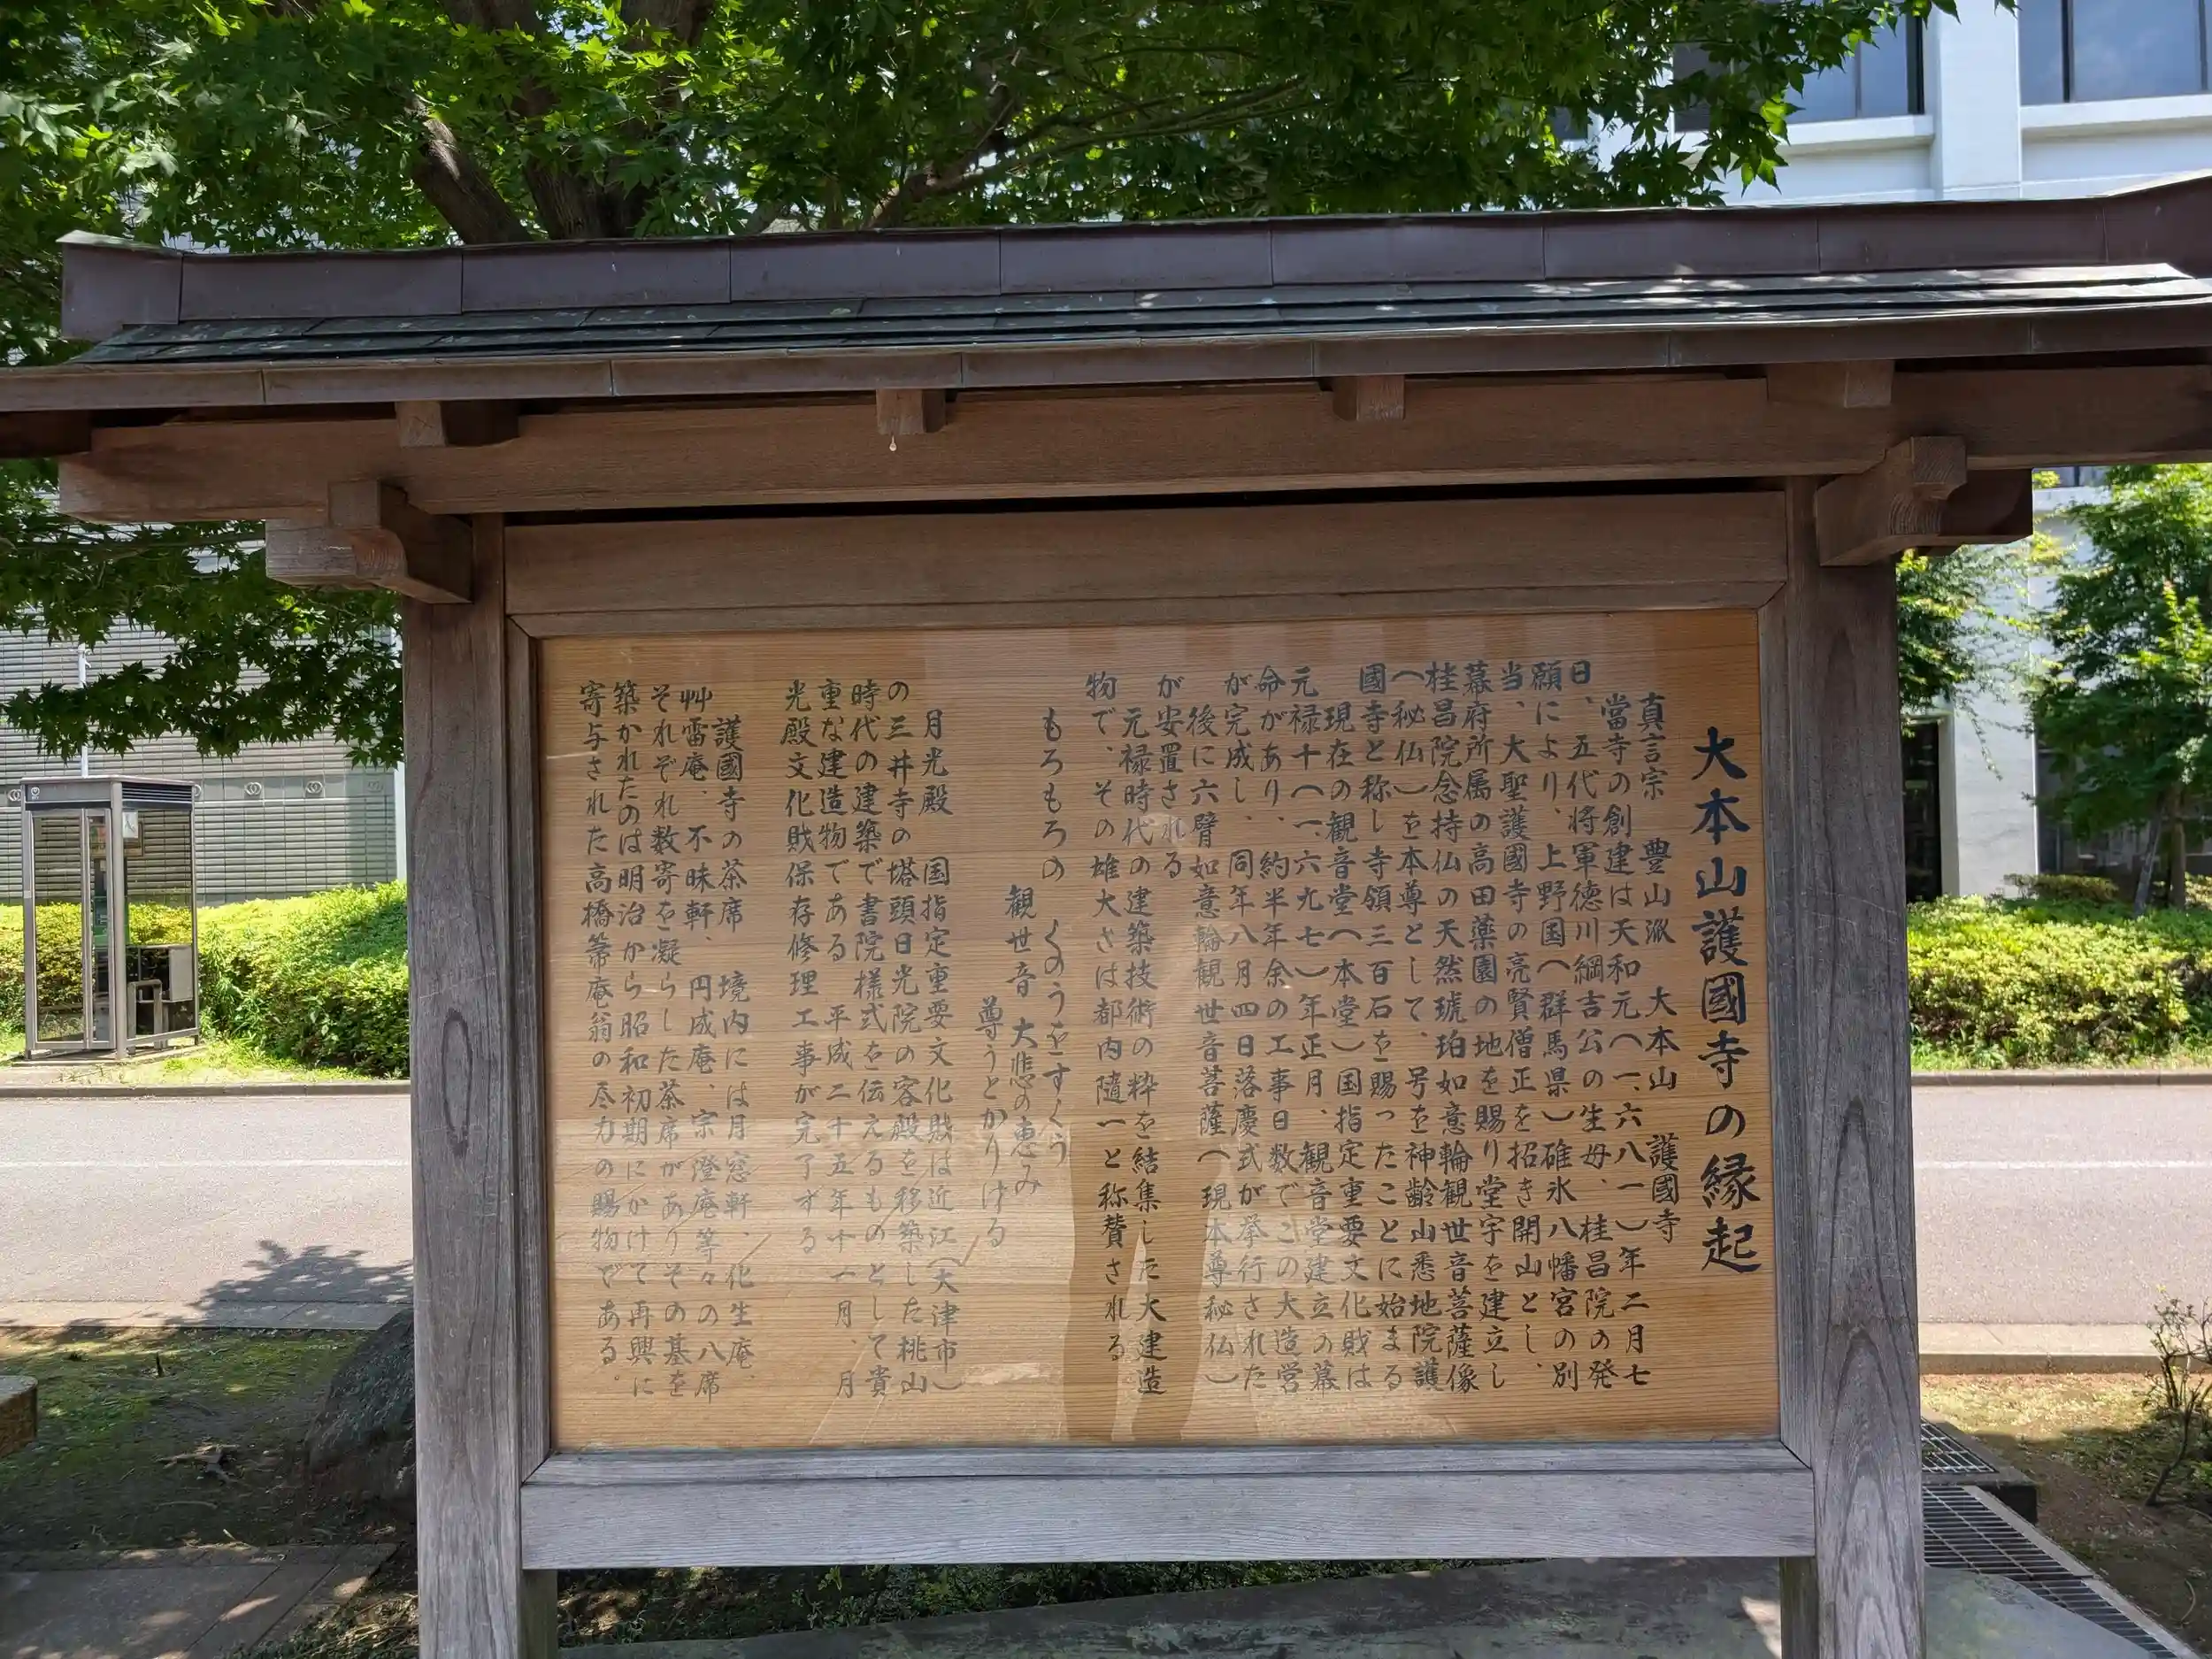 大本山護國寺の縁起
真言宗 豊山派 大本山 護國寺
當寺の創建は天和元(一、六八一)年二月七
日、五代将軍徳川綱吉公の生母、桂昌院の発
願により、上野国(群馬県)碓氷八幡宮の別
当、大聖護國寺の亮賢僧正を招き開山とし、
幕府所属の高田薬園の地を賜り堂宇を建立し
桂昌院念持仏の天然琥珀如意輪観世音菩薩像
(秘仏)を本尊として、号を神齢山悉地院護
國寺と称し寺領三百石を賜ったことに始まる
現在の観音堂(本堂)国指定重要文化財は
元禄十(一、六九七)年正月、観音堂建立の幕
命があり、約半年余の工事日数でこの大造営
が完成し、同年八月四日落慶式が挙行された
が後に六臂如意輪観世音菩薩(現本尊秘仏)
が安置される
元禄時代の建築技術の粋を結集した大建造
物で、その雄大さは都内随一と称賛される
もろもろの くのうをすくう
観世音 大悲の恵み
尊うとかりける
月光殿 国指定重要文化財は近江(大津市)
の三井寺の塔頭日光院の客殿を移築した桃山
時代の建築で書院様式を伝えるものとして貴
重な建造物である 平成二十五年十一月、月
光殿文化財保存修理工事が完了する
護國寺の茶席 境内には月窓軒、化生庵、
艸雷庵、不昧軒、円成庵、宗澄庵等々の八席
それぞれ数寄を凝らした茶席がありその基を
築かれたのは明治から昭和初期にかけて再興に
寄与された高橋箒庵翁の尽力の賜物である。